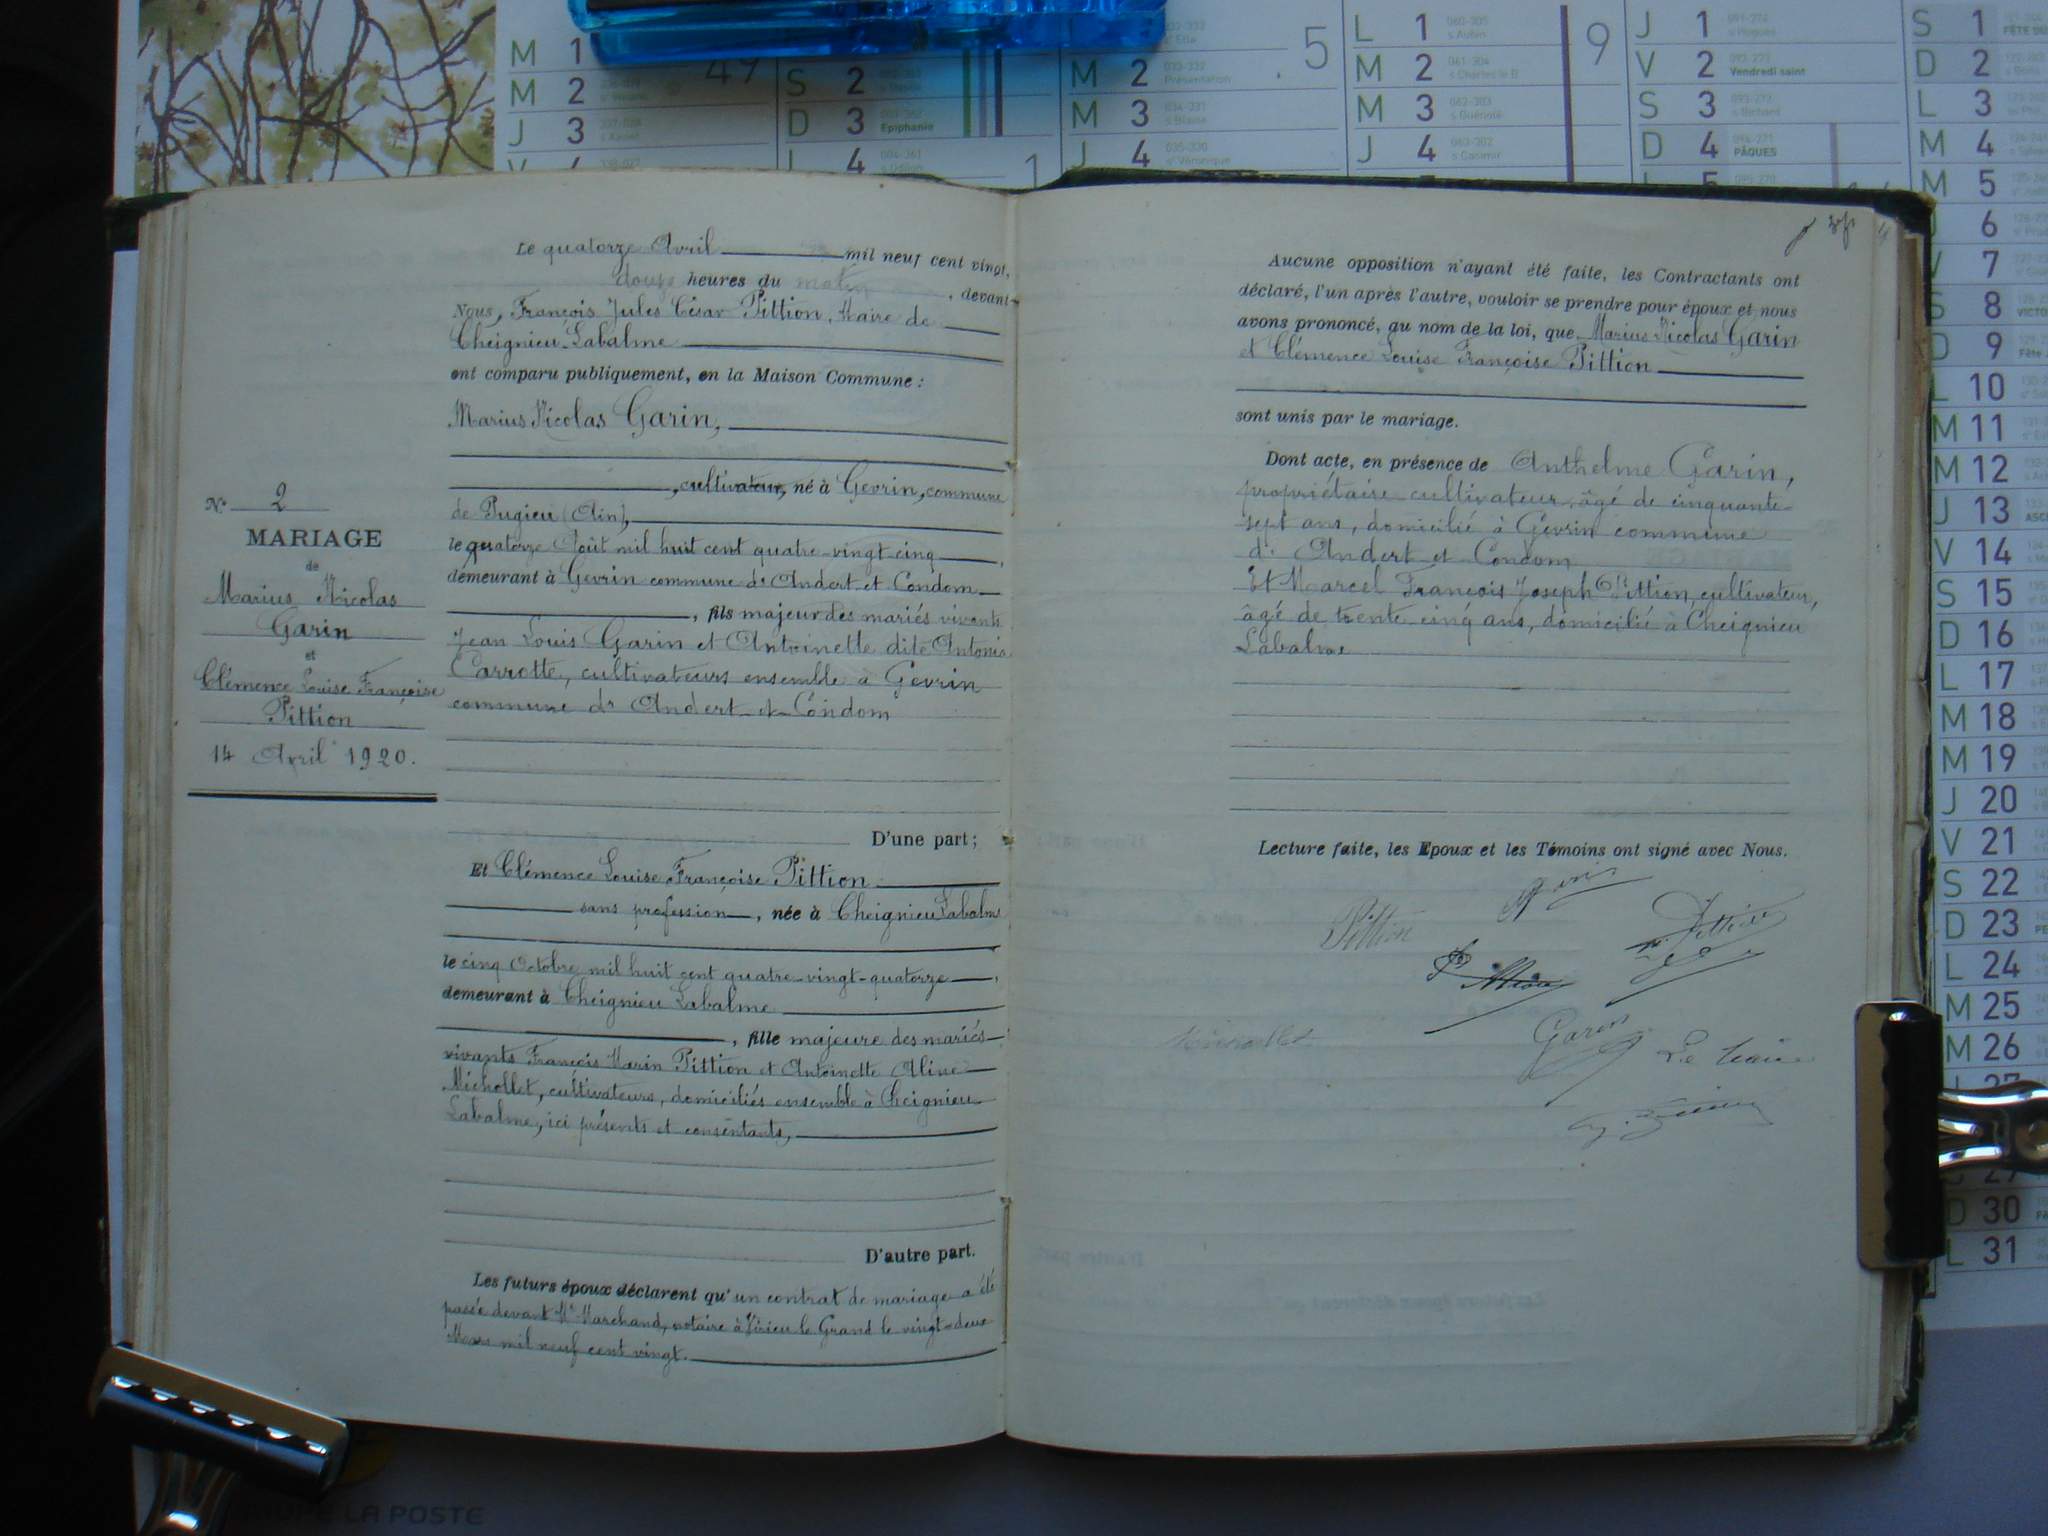 M 1
M 2
J 3
49
S 2
D 3 Epiphanie
L 4
1
M 2 Présentation
M 3 s Blaise
J 4 sᵉ Véronique
5
L 1 060-305 s Aubin
M 2 061-304 s Charles le B
M 3 062-303 s Guénolé
J 4 063-302 s Casimir
9
J 1 091-274 s Hugues
V 2 Vendredi saint
S 3 s Richard
D 4 PÂQUES
S 1 FÊTE DU
D 2
L 3
M 4
M 5
J 6
V 7
S 8 VICTO
D 9
L 10
M 11
M 12
J 13 ASCE
V 14
S 15
D 16
L 17
M 18
M 19
J 20
V 21
S 22
D 23 PE
L 24
M 25
M 26
D 30
L 31
N° 2
MARIAGE
de
Marius Nicolas
Garin
et
Clémence Louise Françoise
Pittion
14 Avril 1920.
Le quatorze Avril mil neuf cent vingt,
douze heures du matin, devant
Nous, François Jules César Pittion, Maire de
Cheignieu-Labalme
ont comparu publiquement, en la Maison Commune :
Marius Nicolas Garin,
, cultivateur, né à Gevrin, commune
de Pugieu (Ain),
le quatorze Août mil huit cent quatre-vingt-cinq,
demeurant à Gevrin commune d'Andert et Condom
, fils majeur des mariés vivants
Jean Louis Garin et Antoinette dite Antonia
Carrotte, cultivateurs ensemble à Gevrin
commune d'Andert et Condom
D'une part ;
Et Clémence Louise Françoise Pittion
sans profession, née à Cheignieu Labalme
le cinq Octobre mil huit cent quatre-vingt-quatorze,
demeurant à Cheignieu Labalme
, fille majeure des mariés
vivants François Marin Pittion et Antoinette Aline
Michollet, cultivateurs, domiciliés ensemble à Cheignieu
Labalme, ici présents et consentants,
D'autre part.
Les futurs époux déclarent qu'un contrat de mariage a été
passé devant Mᵉ Marchand, notaire à Virieu le Grand le vingt-deux
Mars mil neuf cent vingt.
Aucune opposition n'ayant été faite, les Contractants ont
déclaré, l'un après l'autre, vouloir se prendre pour époux et nous
avons prononcé, au nom de la loi, que Marius Nicolas Garin
et Clémence Louise Françoise Pittion
sont unis par le mariage.
Dont acte, en présence de Anthelme Garin,
propriétaire cultivateur, âgé de cinquante-
sept ans, domicilié à Gevrin commune
d'Andert et Condom
Et Marcel François Joseph Pittion, cultivateur,
âgé de trente cinq ans, domicilié à Cheignieu
Labalme
Lecture faite, les Epoux et les Témoins ont signé avec Nous.
Pittion
Garin
Le Maire
LA POSTE